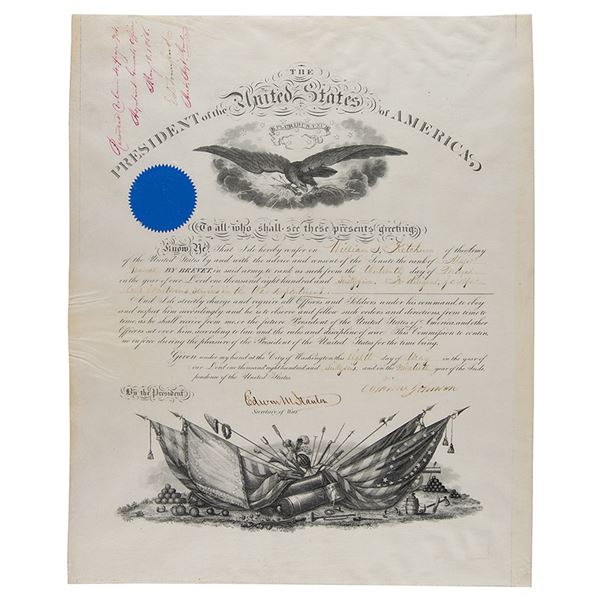 THE
PRESIDENT of the United States of AMERICA,
E PLURIBUS UNUM
To all who shall see these presents greeting:
Know Ye, That I do hereby confer on William S. Ketchum of the Army
of the United States by and with the advice and consent of the Senate the rank of Major
General BY BREVET, in said army to rank as such from the thirteenth day of March
in the year of our Lord one thousand eight hundred and sixty five
And I do strictly charge and require all Officers and Soldiers under his command to obey
and respect him accordingly and he is to observe and follow such orders and directions from time to
time, as he shall receive from me or the future President of the United States of America, and other
Officers set over him according to law and the rules and discipline of war. This Commission to contin-
ue in force during the pleasure of the President of the United States for the time being.
Given under my hand at the City of Washington this eighth day of May in the year of
our Lord one thousand eight hundred and sixty six and in the ninetieth year of the Inde-
pendence of the United States.
By the President
Andrew Johnson
Edwin M. Stanton
Secretary of War